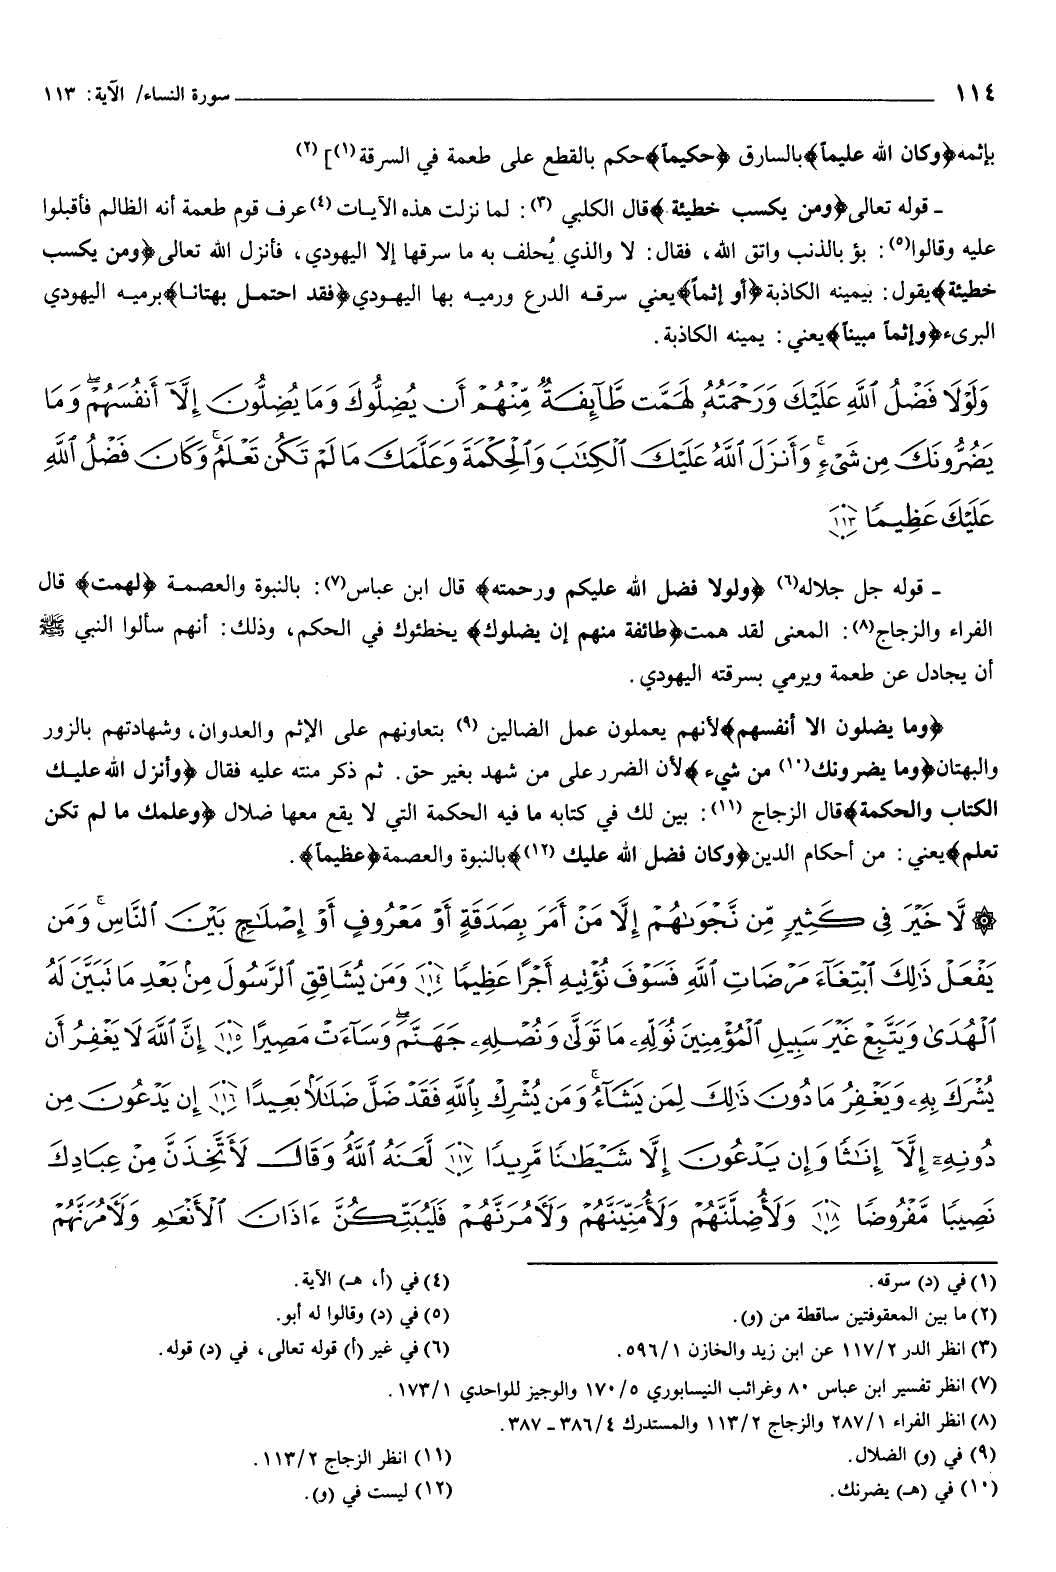 ١١٤ سورة النساء/ الآية: ١١٣
بإثمه﴿وكان الله عليماً﴾بالسارق ﴿حكيماً﴾حكم بالقطع على طعمة في السرقة(١)] (٢)
ـ قوله تعالى﴿ومن يكسب خطيئة ﴾قال الكلبي (٣): لما نزلت هذه الآيات (٤)عرف قوم طعمة أنه الظالم فأقبلوا
عليه وقالوا(٥): بؤ بالذنب واتق الله، فقال: لا والذي يُحلف به ما سرقها إلا اليهودي، فأنزل الله تعالى﴿ومن يكسب
خطيئة﴾يقول: بيمينه الكاذبة﴿أو إثماً﴾يعني سرقه الدرع ورميه بها اليهودي﴿فقد احتمل بهتانا﴾برميه اليهودي
البرىء﴿وإثماً مبيناً﴾يعني: يمينه الكاذبة.
وَلَوْلَا فَضْلُ ٱللَّهِ عَلَيْكَ وَرَحْمَتُهُۥ لَهَمَّت طَّآئِفَةٌ مِّنْهُمْ أَن يُضِلُّوكَ وَمَا يُضِلُّونَ إِلَّآ أَنفُسَهُمْ ۖ وَمَا
يَضُرُّونَكَ مِن شَىْءٍ ۚ وَأَنزَلَ ٱللَّهُ عَلَيْكَ ٱلْكِتَٰبَ وَٱلْحِكْمَةَ وَعَلَّمَكَ مَا لَمْ تَكُن تَعْلَمُ ۚ وَكَانَ فَضْلُ ٱللَّهِ
عَلَيْكَ عَظِيمًا ١١٣
ـ قوله جل جلاله(٦) ﴿ولولا فضل الله عليكم ورحمته﴾ قال ابن عباس(٧): بالنبوة والعصمة ﴿لهمت﴾ قال
الفراء والزجاج(٨): المعنى لقد همت﴿طائفة منهم إن يضلوك﴾ يخطئوك في الحكم، وذلك: أنهم سألوا النبي ﷺ
أن يجادل عن طعمة ويرمي بسرقته اليهودي.
﴿وما يضلون الا أنفسهم﴾لأنهم يعملون عمل الضالين (٩) بتعاونهم على الإثم والعدوان، وشهادتهم بالزور
والبهتان﴿وما يضرونك(١٠) من شيء ﴾لأن الضرر على من شهد بغير حق. ثم ذكر منته عليه فقال ﴿وأنزل الله عليك
الكتاب والحكمة﴾قال الزجاج (١١): بين لك في كتابه ما فيه الحكمة التي لا يقع معها ضلال ﴿وعلمك ما لم تكن
تعلم﴾يعني: من أحكام الدين﴿وكان فضل الله عليك (١٢)﴾بالنبوة والعصمة﴿عظيماً﴾.
۞ لَّا خَيْرَ فِى كَثِيرٍ مِّن نَّجْوَىٰهُمْ إِلَّا مَنْ أَمَرَ بِصَدَقَةٍ أَوْ مَعْرُوفٍ أَوْ إِصْلَٰحٍۭ بَيْنَ ٱلنَّاسِ ۚ وَمَن
يَفْعَلْ ذَٰلِكَ ٱبْتِغَآءَ مَرْضَاتِ ٱللَّهِ فَسَوْفَ نُؤْتِيهِ أَجْرًا عَظِيمًا ١١٤ وَمَن يُشَاقِقِ ٱلرَّسُولَ مِنۢ بَعْدِ مَا تَبَيَّنَ لَهُ
ٱلْهُدَىٰ وَيَتَّبِعْ غَيْرَ سَبِيلِ ٱلْمُؤْمِنِينَ نُوَلِّهِۦ مَا تَوَلَّىٰ وَنُصْلِهِۦ جَهَنَّمَ ۖ وَسَآءَتْ مَصِيرًا ١١٥ إِنَّ ٱللَّهَ لَا يَغْفِرُ أَن
يُشْرَكَ بِهِۦ وَيَغْفِرُ مَا دُونَ ذَٰلِكَ لِمَن يَشَآءُ ۚ وَمَن يُشْرِكْ بِٱللَّهِ فَقَدْ ضَلَّ ضَلَٰلًۢا بَعِيدًا ١١٦ إِن يَدْعُونَ مِن
دُونِهِۦٓ إِلَّآ إِنَٰثًا وَإِن يَدْعُونَ إِلَّا شَيْطَٰنًا مَّرِيدًا ١١٧ لَّعَنَهُ ٱللَّهُ وَقَالَ لَأَتَّخِذَنَّ مِنْ عِبَادِكَ
نَصِيبًا مَّفْرُوضًا ١١٨ وَلَأُضِلَّنَّهُمْ وَلَأُمَنِّيَنَّهُمْ وَلَءَامُرَنَّهُمْ فَلَيُبَتِّكُنَّ ءَاذَانَ ٱلْأَنْعَٰمِ وَلَءَامُرَنَّهُمْ
(١) في (د) سرقه.
(٢) ما بين المعقوفتين ساقطة من (و).
(٣) انظر الدر ١١٧/٢ عن ابن زيد والخازن ٥٩٦/١.
(٤) في (أ، هـ) الآية.
(٥) في (د) وقالوا له أبو.
(٦) في غير (أ) قوله تعالى، في (د) قوله.
(٧) انظر تفسير ابن عباس ٨٠ وغرائب النيسابوري ١٧٠/٥ والوجيز للواحدي ١٧٣/١.
(٨) انظر الفراء ٢٨٧/١ والزجاج ١١٣/٢ والمستدرك ٣٨٦/٤ ـ ٣٨٧.
(٩) في (و) الضلال.
(١٠) في (هـ) يضرنك.
(١١) انظر الزجاج ١١٣/٢.
(١٢) ليست في (و).